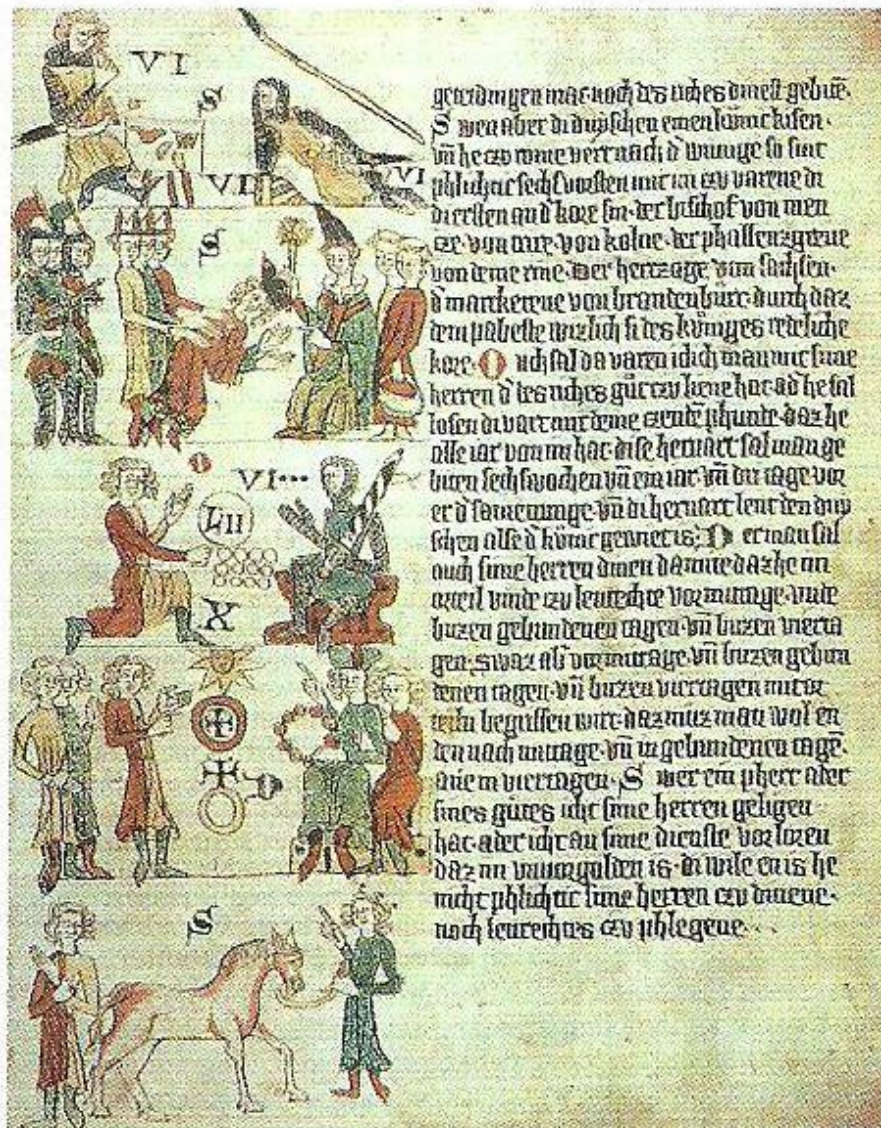 VI
S
VI
VI
S
O
VI...
LII
X
S
mac noch des riches dinest gebitē.
S wen aber di dutschen einen kunic kisen.
vn̄ he czu rome vert nach d' wiunge so sint
phlichtic sechs vorsten mit im czu varene di
di ersten an d' kore sin. der bischof von men
cze. von trire. von kolne. der phallenzgreue
von deme rine. der herczoge von sachsen.
d' marcgreue von brandenburc. durch daz
dem pabeste wizlich si des kuniges redeliche
kore. O uch sal da varen iclich man mit sime
herren d' des riches gut czu lene hat. ad' he sal
losen di vart mit deme czende phunde. daz he
alle iar von im hat. dise heruart sal man ge
biten sechs wochen vn̄ ein iar. vn̄ dri tage vor
er d' samenunge. vn̄ di heruart lent den dut
schen alse d' kunic gewiet is. D er man sal
ouch sime herren dinen da mite daz he im
orteil vinde czu lenrechte vor mittage. vnde
buzen gebundenen tagen. vn̄ buzen vierta
gen. swaz ab' vor mittage. vn̄ buzen gebun
denen tagen. vn̄ buzen viertagen mit or
teiln begriffen wirt. daz muz man wol en
den nach mittage. vn̄ in gebundenen tagē.
ane in viertagen. S wer ein phert ader
sines gutes icht sime herren geligen
hat. ader icht an sime dienste vorloren
daz im vnuorgulden is. di wile en is he
nicht phlichtic sime herren czu dinene.
noch lenrechtes czu phlegene...